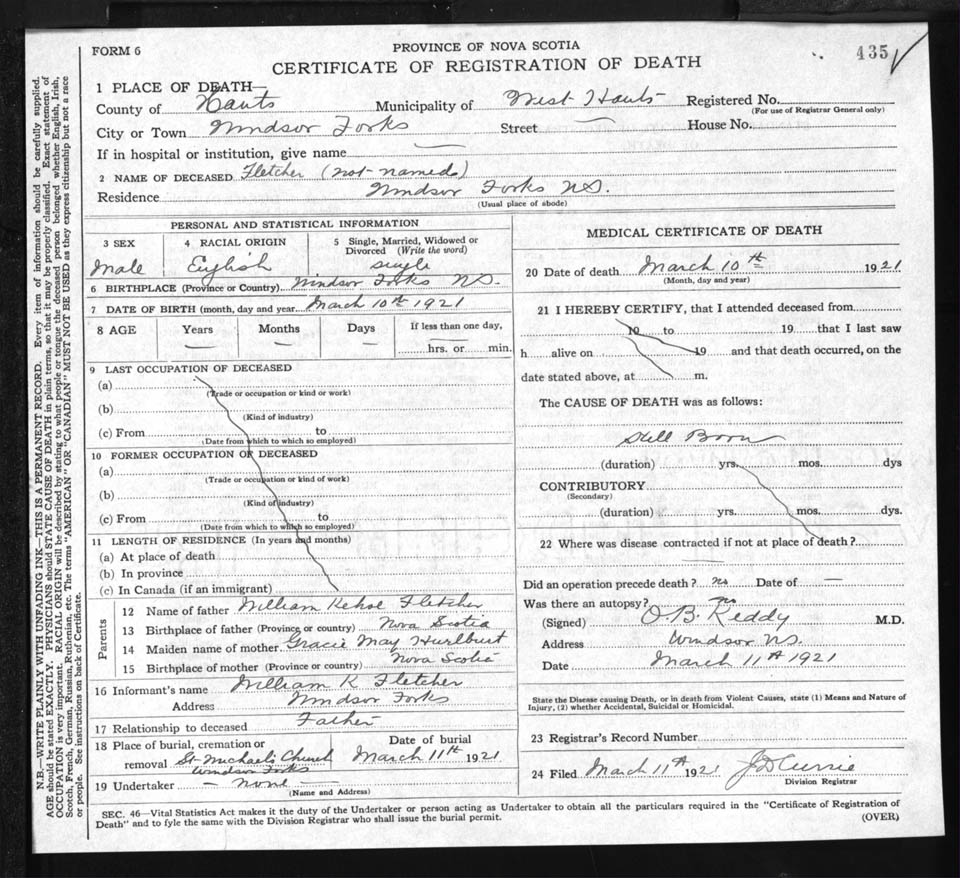 FORM 6
PROVINCE OF NOVA SCOTIA
435
CERTIFICATE OF REGISTRATION OF DEATH
N.B.—WRITE PLAINLY WITH UNFADING INK—THIS IS A PERMANENT RECORD. Every item of information should be carefully supplied.
AGE should be stated EXACTLY. PHYSICIANS should STATE CAUSE OF DEATH in plain terms, so that it may be properly classified. Exact statement of
OCCUPATION is very important. RACIAL ORIGIN will be described by stating to what people or tongue the deceased person belonged whether English, Irish,
Scotch, French, German, Russian, Ruthenian, etc. The terms "AMERICAN" OR "CANADIAN" MUST NOT BE USED as they express citizenship but not a race
or people. See instructions on back of Certificate.
1 PLACE OF DEATH—
County of Hants Municipality of West Hants Registered No.
(For use of Registrar General only)
City or Town Windsor Forks Street — House No.
If in hospital or institution, give name —
2 NAME OF DECEASED Fletcher (not named)
Residence Windsor Forks N.S.
(Usual place of abode)
PERSONAL AND STATISTICAL INFORMATION
3 SEX 4 RACIAL ORIGIN 5 Single, Married, Widowed or
Divorced (Write the word)
Male English single
6 BIRTHPLACE (Province or Country) Windsor Forks N.S.
7 DATE OF BIRTH (month, day and year) March 10th 1921
8 AGE Years Months Days If less than one day,
— — — hrs. or min.
9 LAST OCCUPATION OF DECEASED
(a)
(Trade or occupation or kind or work)
(b)
(Kind of industry)
(c) From to
(Date from which to which so employed)
10 FORMER OCCUPATION OF DECEASED
(a)
(Trade or occupation or kind of work)
(b)
(Kind of industry)
(c) From to
(Date from which to which so employed)
11 LENGTH OF RESIDENCE (In years and months)
(a) At place of death
(b) In province
(c) In Canada (if an immigrant)
Parents
12 Name of father William Kehoe Fletcher
13 Birthplace of father (Province or country) Nova Scotia
14 Maiden name of mother Gracie May Hurlburt
15 Birthplace of mother (Province or country) Nova Scotia
16 Informant's name William K Fletcher
Address Windsor Forks
17 Relationship to deceased Father
18 Place of burial, cremation or Date of burial
removal St Michael's Church March 11th 1921
Windsor Forks
19 Undertaker — none —
(Name and Address)
MEDICAL CERTIFICATE OF DEATH
20 Date of death March 10th 1921
(Month, day and year)
21 I HEREBY CERTIFY, that I attended deceased from
19 to 19 that I last saw
h alive on 19 and that death occurred, on the
date stated above, at m.
The CAUSE OF DEATH was as follows:
Still Born
(duration) yrs. mos. dys
CONTRIBUTORY
(Secondary)
(duration) yrs. mos. dys.
22 Where was disease contracted if not at place of death?
—
Did an operation precede death? no Date of —
Was there an autopsy? no
(Signed) O.B. Keddy M.D.
Address Windsor N.S.
Date March 11th 1921
State the Disease causing Death, or in death from Violent Causes, state (1) Means and Nature of
Injury, (2) whether Accidental, Suicidal or Homicidal.
23 Registrar's Record Number
24 Filed March 11th 1921 J D Currie
Division Registrar
SEC. 46—Vital Statistics Act makes it the duty of the Undertaker or person acting as Undertaker to obtain all the particulars required in the "Certificate of Registration of
Death" and to fyle the same with the Division Registrar who shall issue the burial permit.
(OVER)